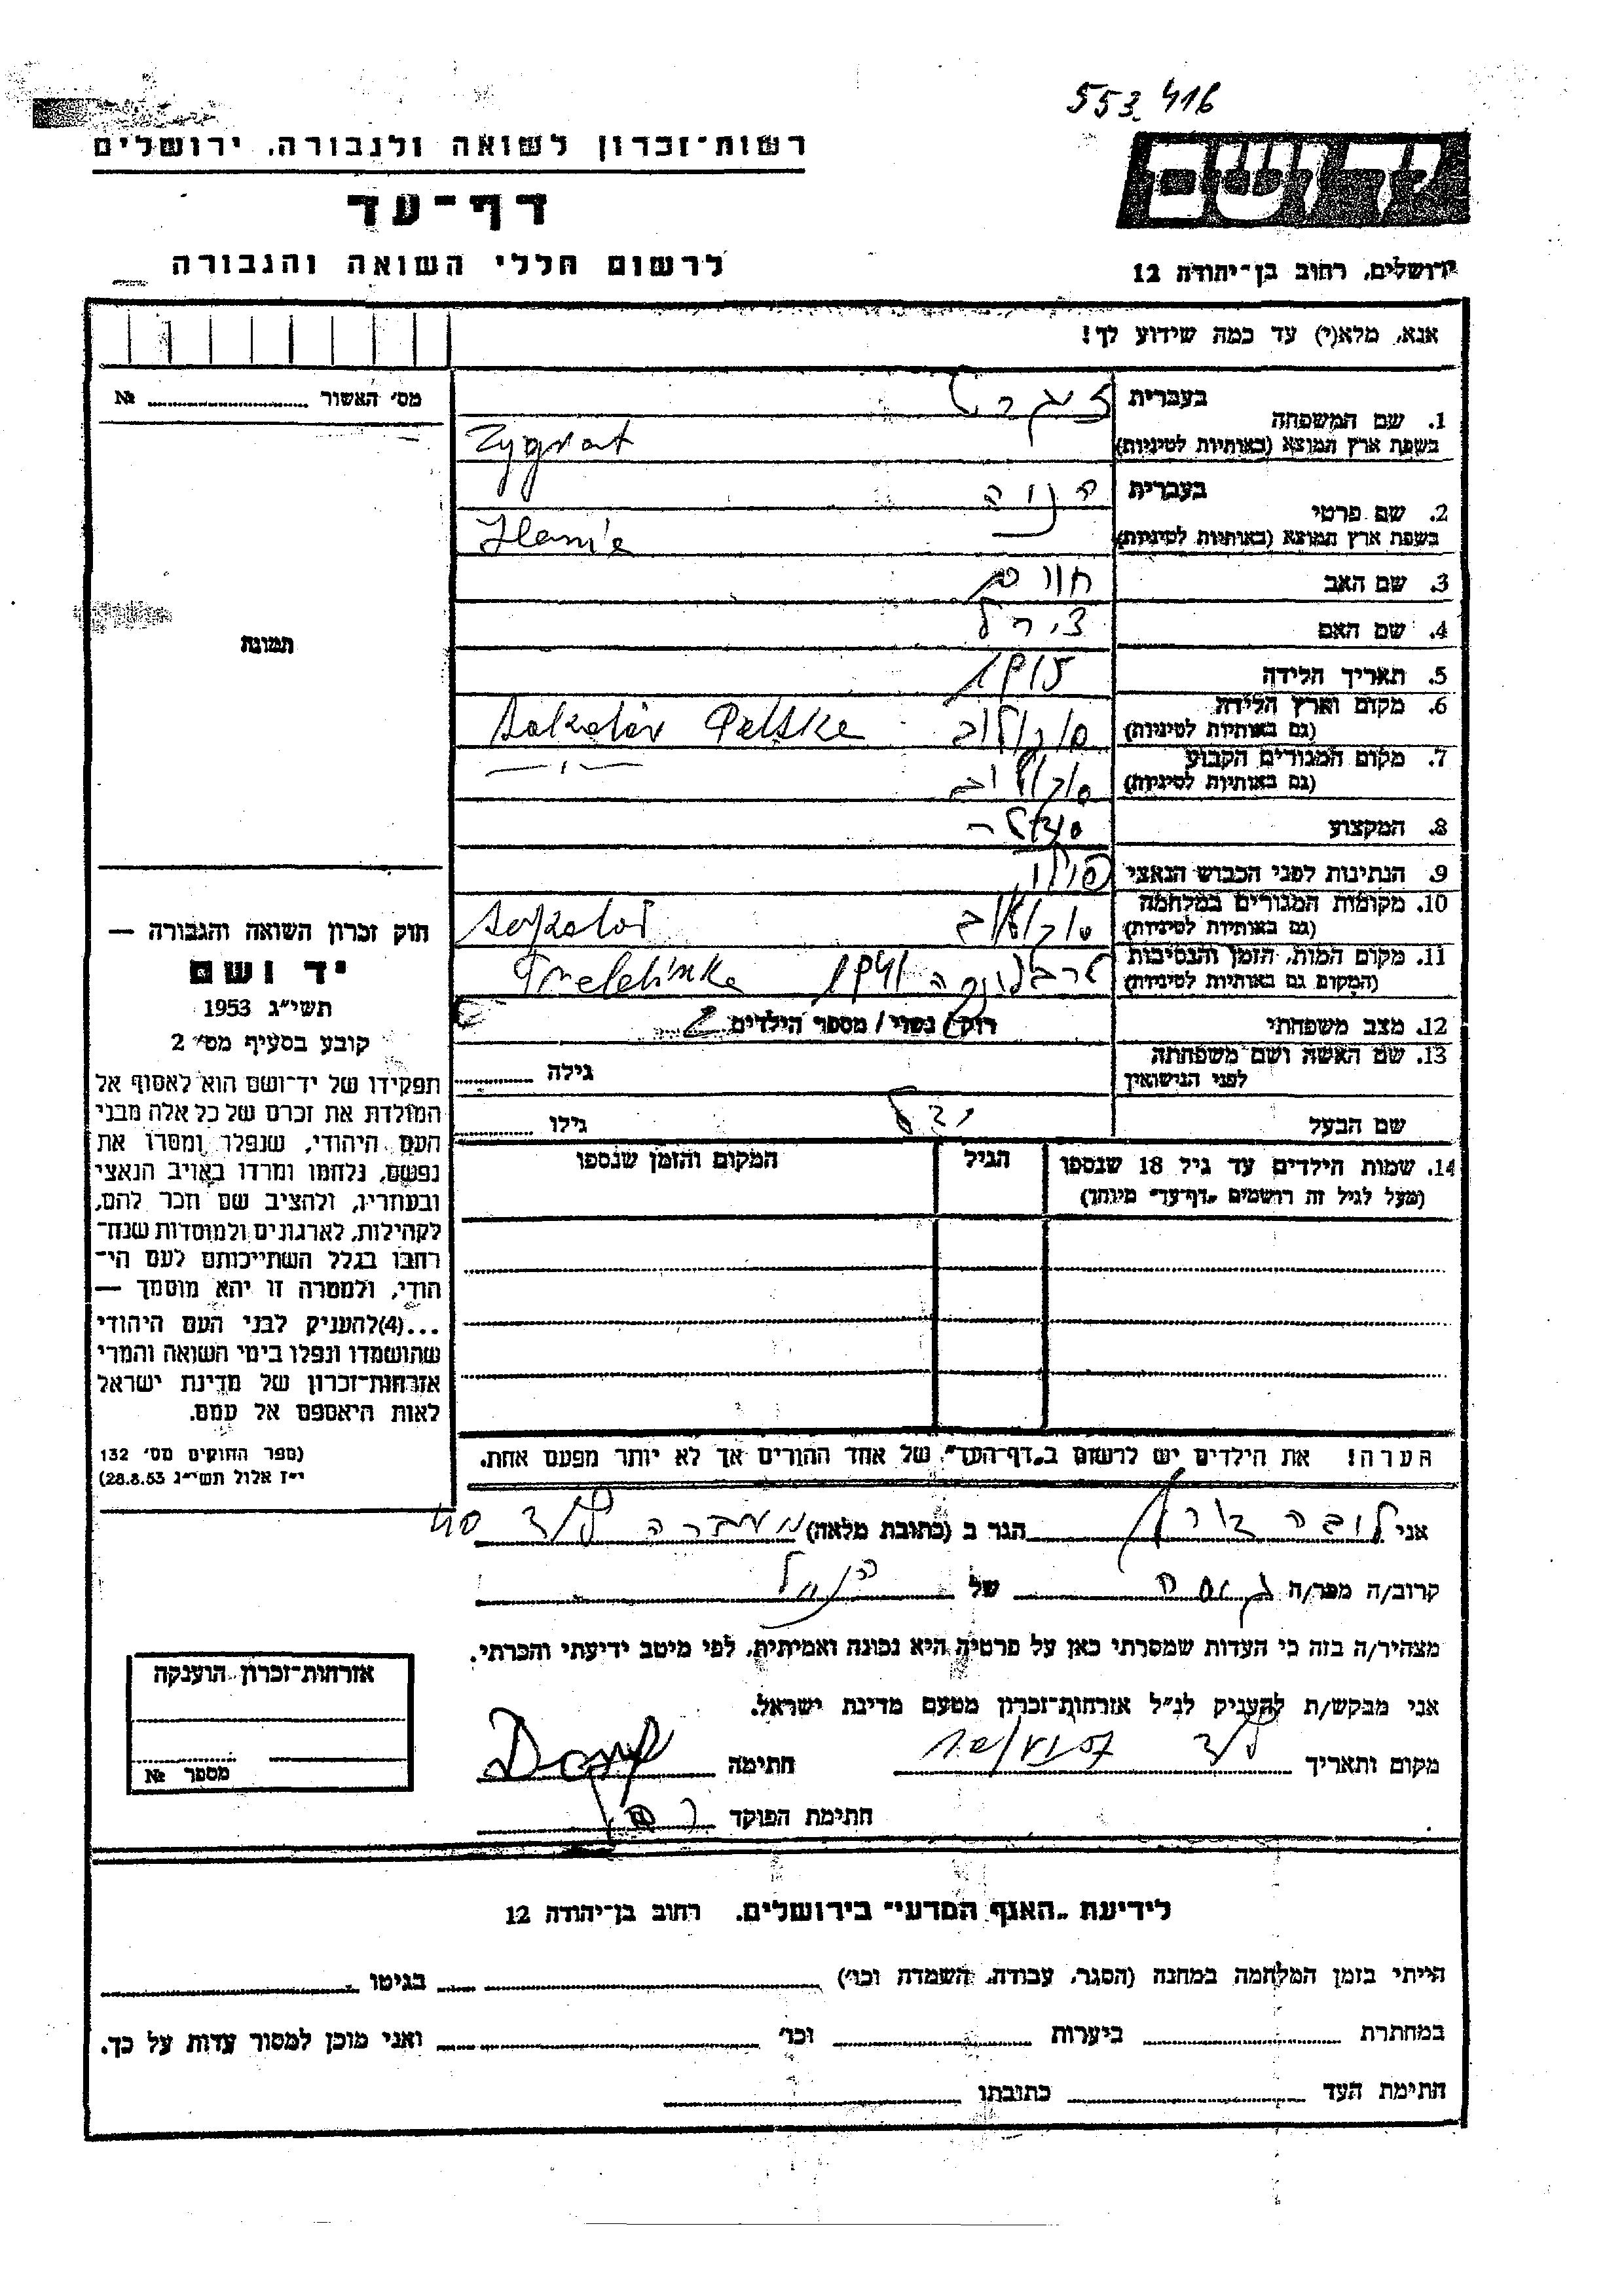 553416
רשות־זכרון לשואה ולגבורה, ירושלים
דף־עד
לרשום חללי השואה והגבורה
יד ושם
ירושלים, רחוב בן־יהודה 12
אנא, מלא(י) עד כמה שידוע לך!
מס׳ האשור № 
1. שם המשפחה
בעברית
בשפת ארץ המוצא (באותיות לטיניות)
2. שם פרטי
בעברית הניה
בשפת ארץ המוצא (באותיות לטיניות) Hania
3. שם האב
4. שם האם צירל
5. תאריך הלידה 1915
6. מקום וארץ הלידה (גם באותיות לטיניות) סוקולוב
7. מקום המגורים הקבוע (גם באותיות לטיניות) סוקולוב
8. המקצוע
9. הנתינות לפני הכבוש הנאצי
10. מקומות המגורים במלחמה (גם באותיות לטיניות) סוקולוב
11. מקום המות, הזמן והנסיבות (המקום גם באותיות לטיניות) טרבלינקה 1941
12. מצב משפחתי רוק / נשוי / מספר הילדים 2
13. שם האשה ושם משפחתה לפני הנישואין גילה
שם הבעל גילו
14. שמות הילדים עד גיל 18 שנספו (מעל לגיל זה רושמים „דף־עד״ מיוחד)
הגיל
המקום והזמן שנספו
הערה! את הילדים יש לרשום ב„דף־העד״ של אחד ההורים אך לא יותר מפעם אחת.
תמונה
חוק זכרון השואה והגבורה —
יד ושם
תשי״ג 1953
קובע בסעיף מס׳ 2
תפקידו של יד־ושם הוא לאסוף אל
המולדת את זכרם של כל אלה מבני
העם היהודי, שנפלו ומסרו את
נפשם, נלחמו ומרדו באויב הנאצי
ובעוזריו, ולהציב שם וזכר להם,
לקהילות, לארגונים ולמוסדות שנח־
רבו בגלל השתייכותם לעם הי־
הודי, ולמטרה זו יהא מוסמך —
...(4)להעניק לבני העם היהודי
שהושמדו ונפלו בימי השואה והמרי
אזרחות־זכרון של מדינת ישראל
לאות היאספם אל עמם.
(ספר החוקים מס׳ 132
י״ז אלול תשי״ג 28.8.53)
אני לובה הגר ב (כתובת מלאה) מעברה לוד 40
קרוב/ה מכר/ה גיסה של הנ״ל
מצהיר/ה בזה כי העדות שמסרתי כאן על פרטיה היא נכונה ואמיתית, לפי מיטב ידיעתי והכרתי.
אני מבקש/ת להעניק לנ״ל אזרחות־זכרון מטעם מדינת ישראל.
מקום ותאריך לוד חתימה
חתימת הפוקד
אזרחות־זכרון הוענקה
מספר №
לידיעת „האגף המדעי״ בירושלים, רחוב בן־יהודה 12
הייתי בזמן המלחמה במחנה (הסגר, עבודה, השמדה וכו׳) בגיטו
במחתרת ביערות וכו׳ ואני מוכן למסור עדות על כך.
חתימת העד כתובתו